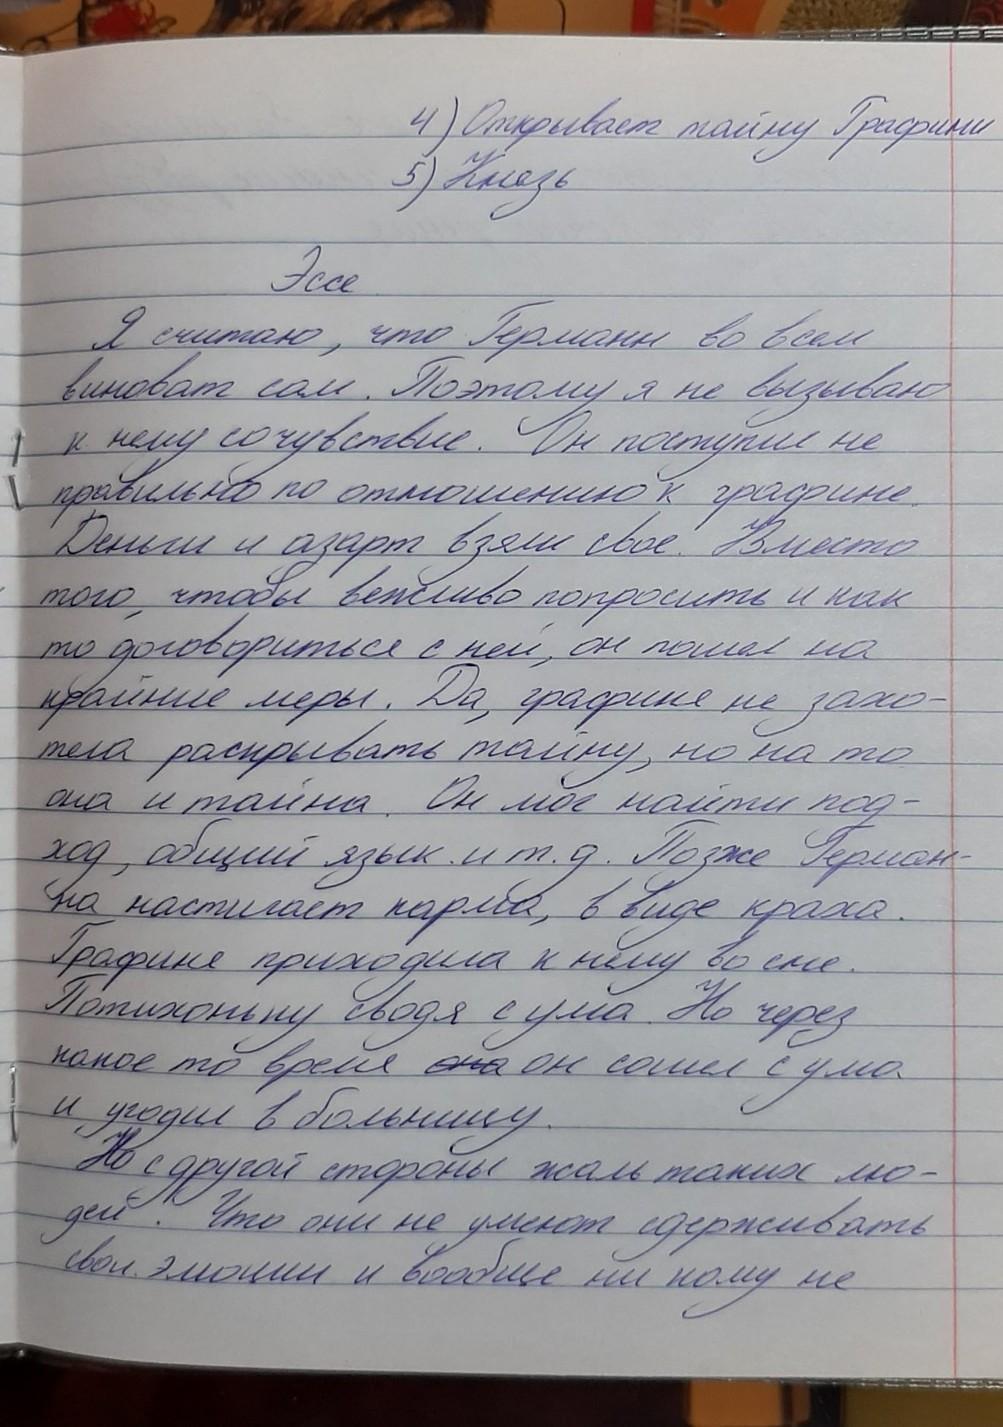 4) Открывает тайну Графини
5) Князь
Эссе
Я считаю, что Германн во всем
виноват сам. Поэтому я не вызываю
к нему сочувствие. Он поступил не
правильно по отношению к графине.
Деньги и азарт взяли свое. Вместо
того, чтобы вежливо попросить и как
то договориться с ней, он пошел на
крайние меры. Да, графиня не захо-
тела раскрывать тайну, но на то
она и тайна. Он мог найти под-
ход, общий язык и т.д. Позже Герман-
на настигает карма, в виде краха.
Графиня приходила к нему во сне.
Потихоньку сводя с ума. Но через
какое то время она он сошел с ума
и угодил в больницу.
Но с другой стороны жаль таких лю-
дей. Что они не умеют сдерживать
свои эмоции и вообще ни кому не